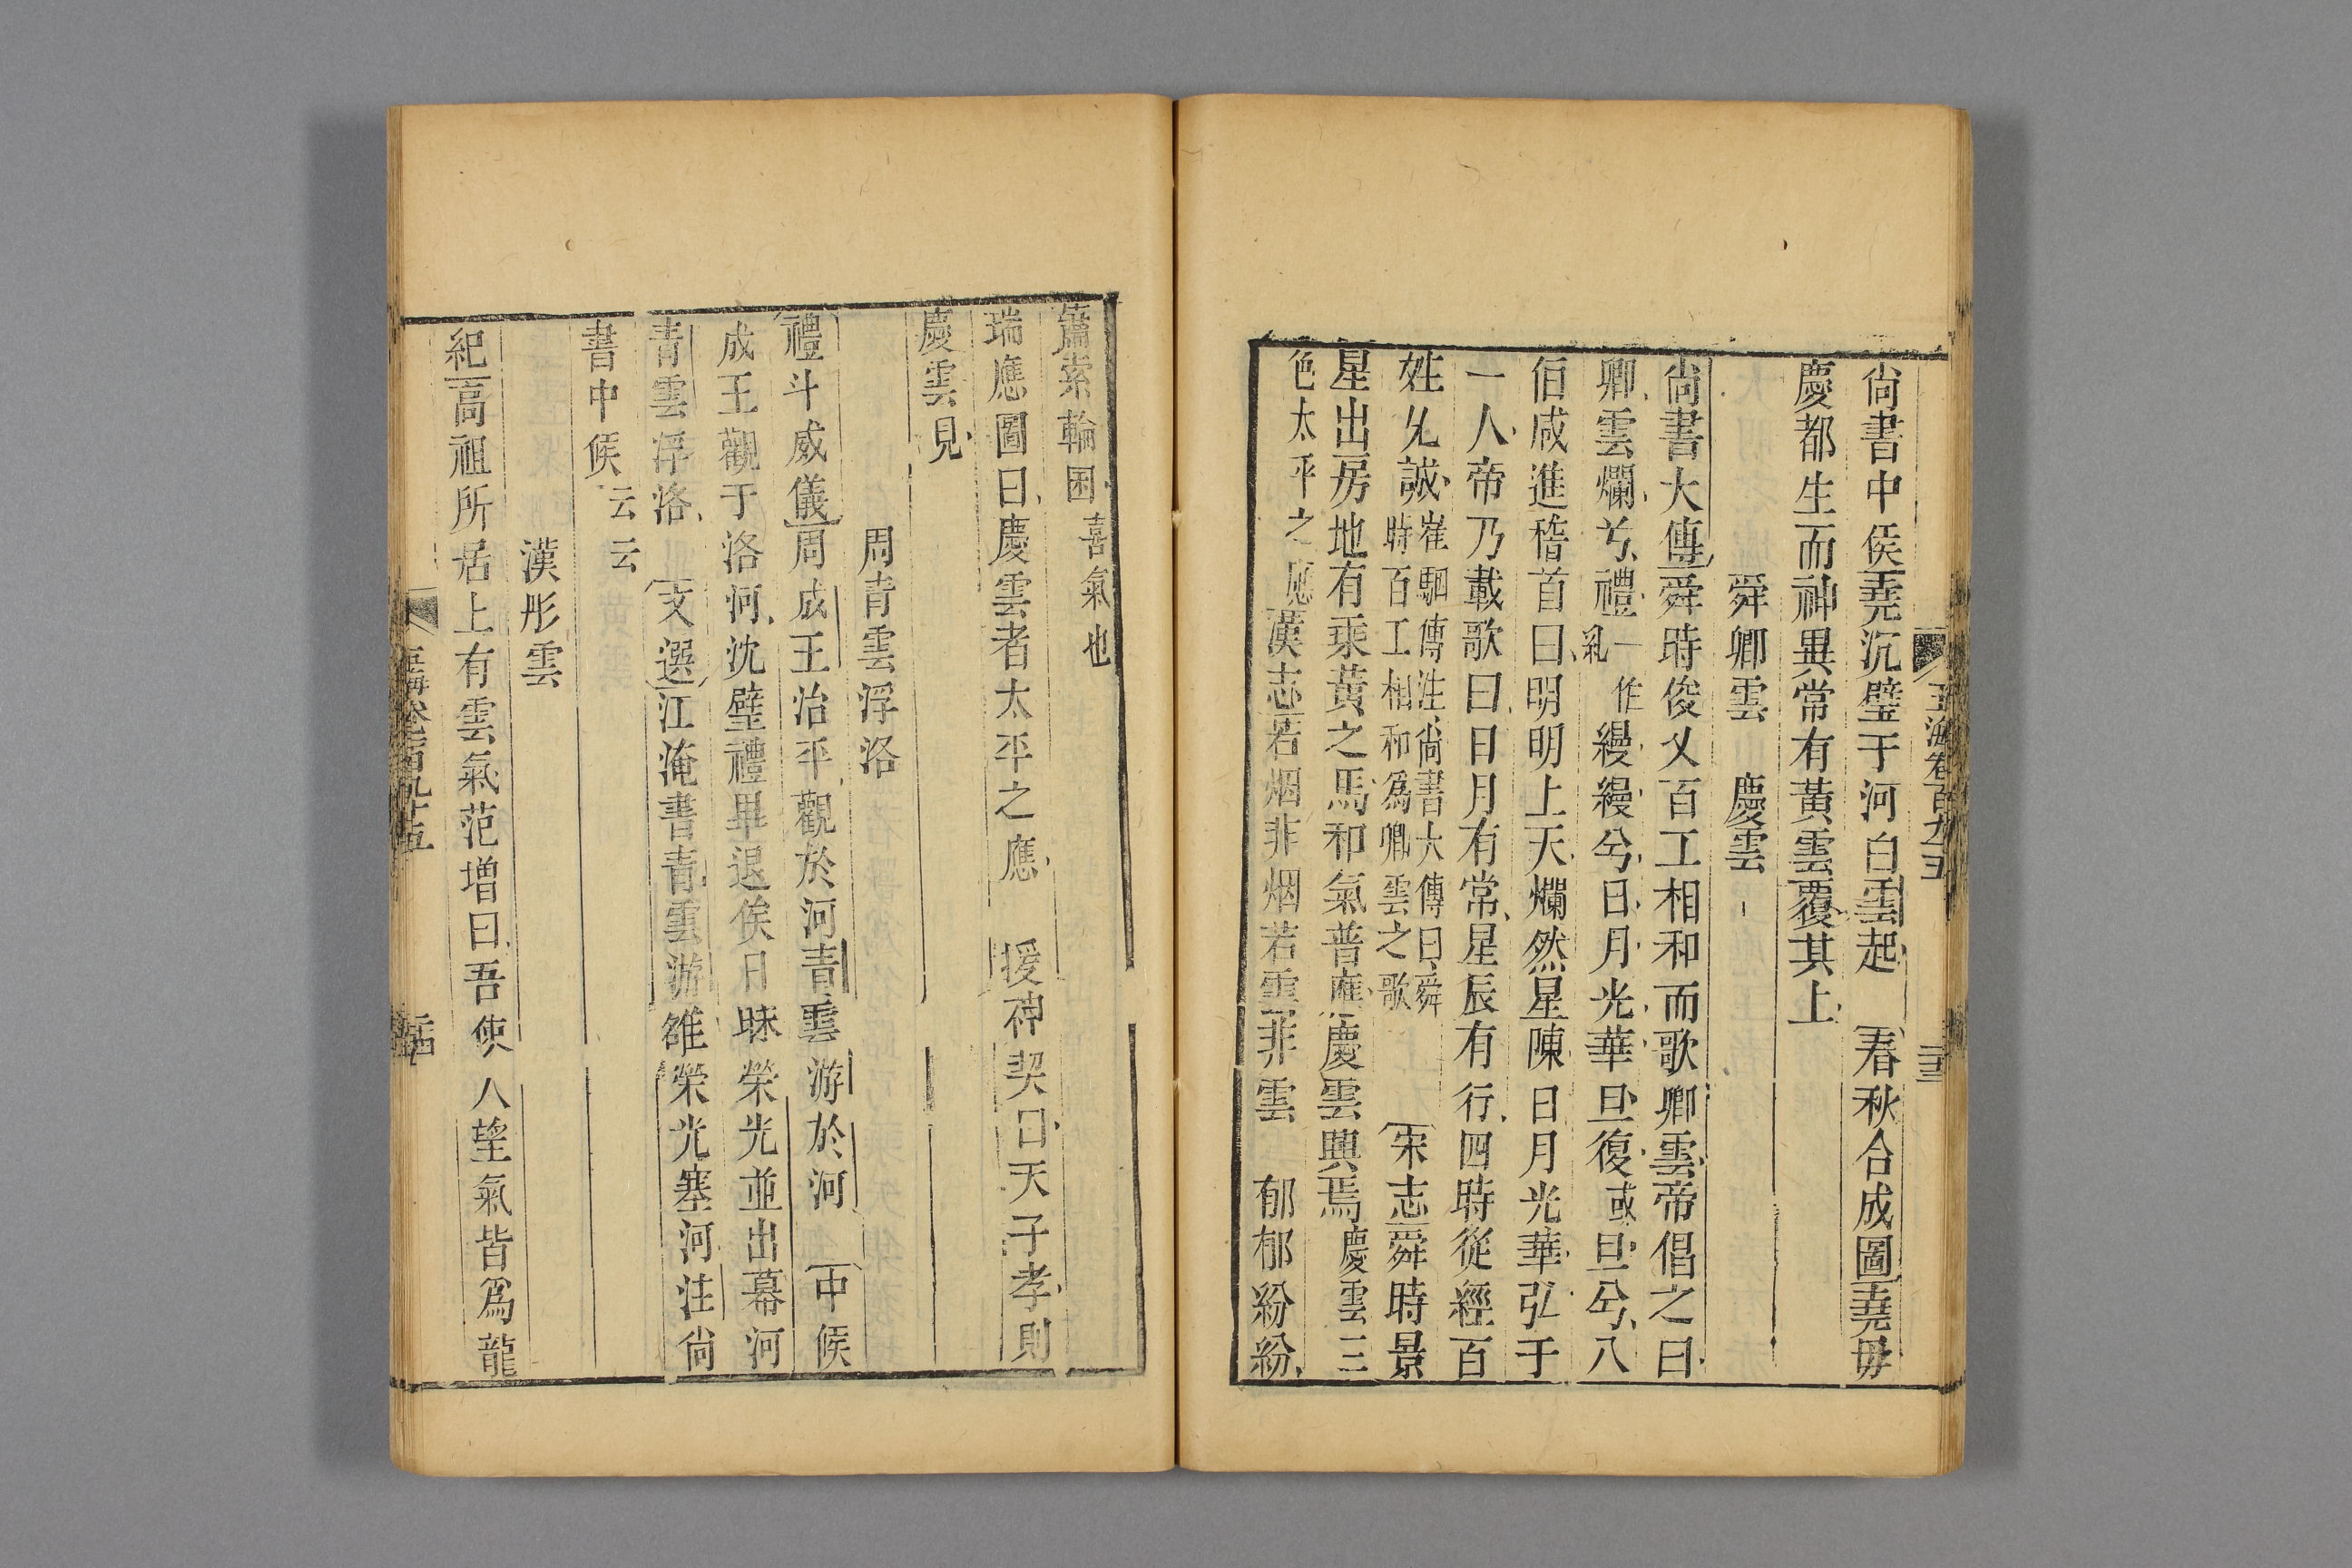 玉海卷百九五
二十三
尚書中侯堯沉璧于河白雲起　春秋合成圖堯毋
慶都生而神異常有黃雲覆其上
舜卿雲　慶雲
尚書大傳舜時俊乂百工相和而歌卿雲帝倡之曰
卿雲爛兮禮一作糺縵縵兮日月光華旦復或旦兮八
伯咸進稽首曰明明上天爛然星陳日月光華弘于
一人帝乃載歌曰日月有常星辰有行四時從經百
姓允誠崔駰傳注尚書大傳曰舜時百工相和爲卿雲之歌　宋志舜時景
星出房地有乘黃之馬和氣普應慶雲興焉慶雲三
色太平之應漢志若烟非烟若雲非雲　郁郁紛紛
蕭索輪囷喜氣也
瑞應圖曰慶雲者太平之應　援神契曰天子孝則
慶雲見
周青雲浮洛
禮斗威儀周成王治平觀於河青雲游於河　中候
成王觀于洛河沈璧禮畢退俟日昧榮光並出幕河
青雲浮洛　文選江淹書青雲游雒榮光塞河注尚
書中候云云
漢彤雲
紀高祖所居上有雲氣范增曰吾使人望氣皆爲龍
玉海卷一百九十五
二十四